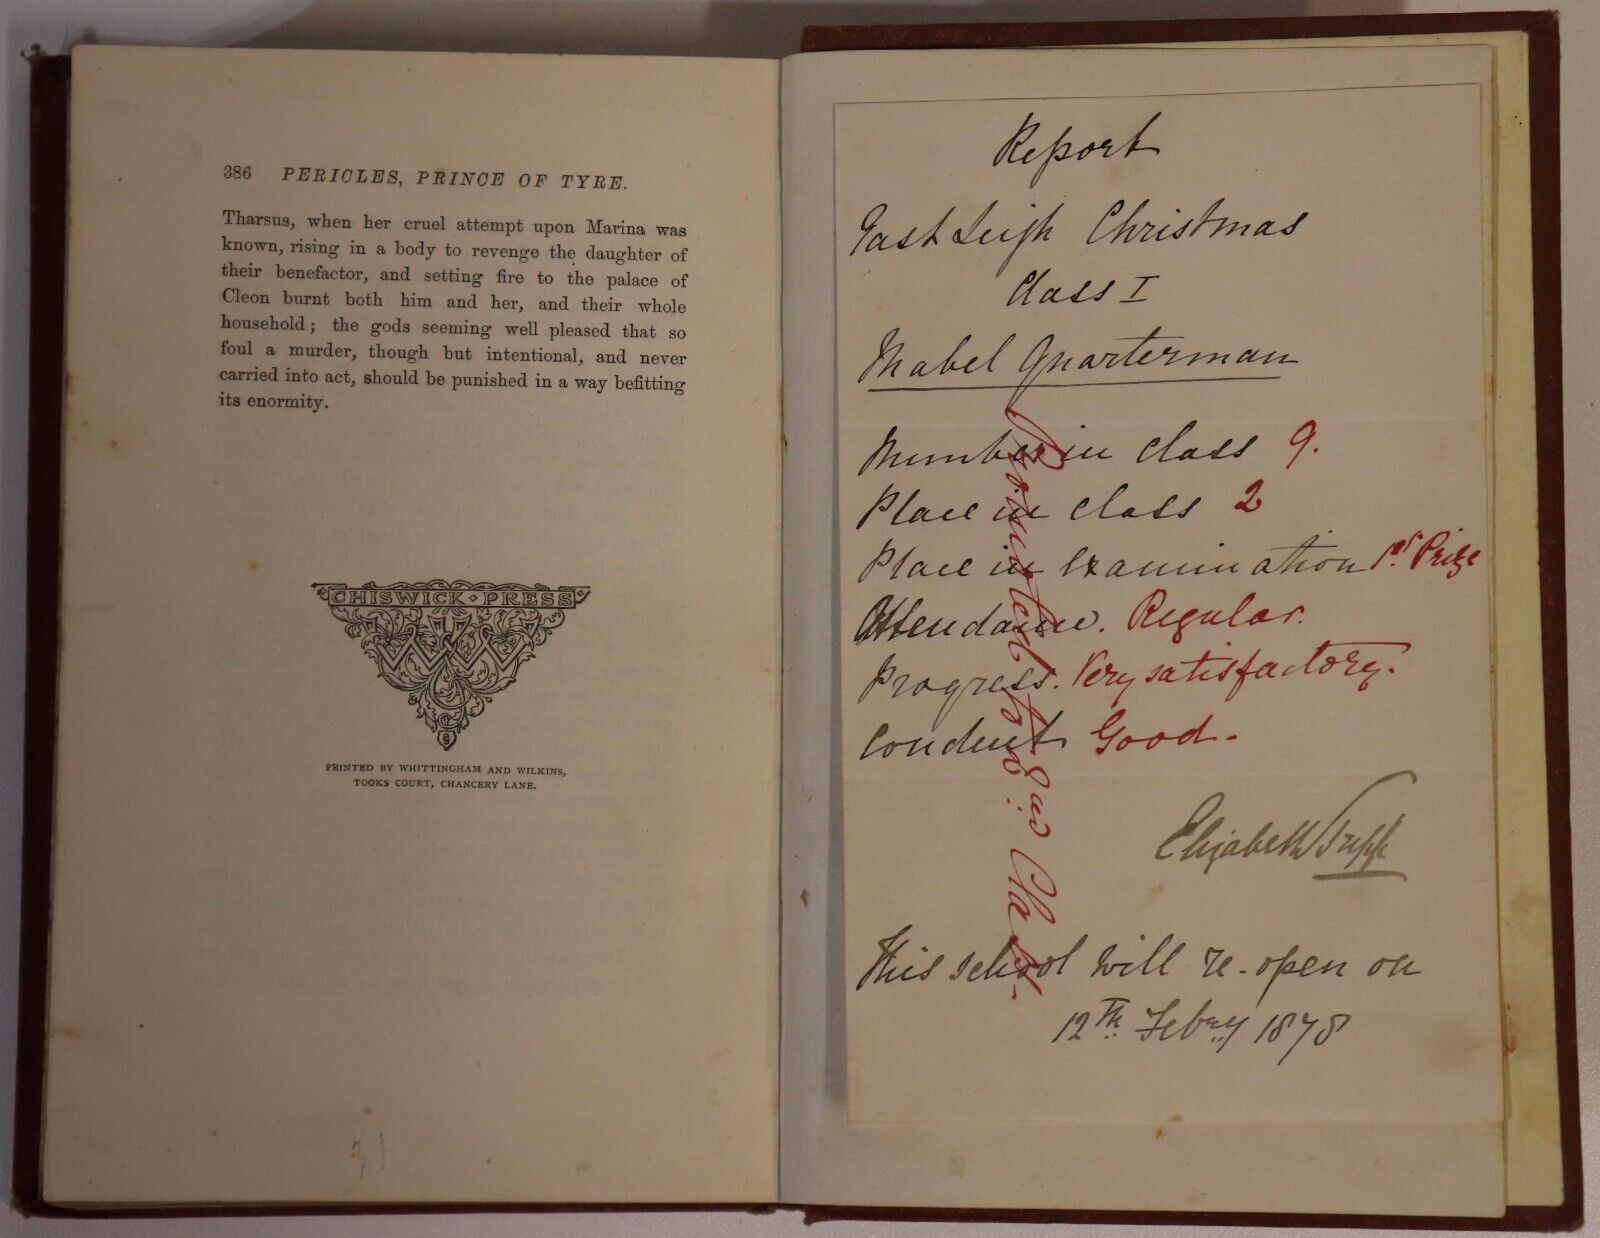 386 PERICLES, PRINCE OF TYRE.
Tharsus, when her cruel attempt upon Marina was
known, rising in a body to revenge the daughter of
their benefactor, and setting fire to the palace of
Cleon burnt both him and her, and their whole
household; the gods seeming well pleased that so
foul a murder, though but intentional, and never
carried into act, should be punished in a way befitting
its enormity.
CHISWICK PRESS
PRINTED BY WHITTINGHAM AND WILKINS,
TOOKS COURT, CHANCERY LANE.
Report
East Leigh Christmas
Class I
Mabel Quarterman
Number in class 9.
Place in class 2
Place in Examination 1st Prize
Attendance. Regular.
Progress. Very satisfactory.
Conduct Good.
Elizabeth
This school will re-open on
12th Febry 1878
Promoted to: Class